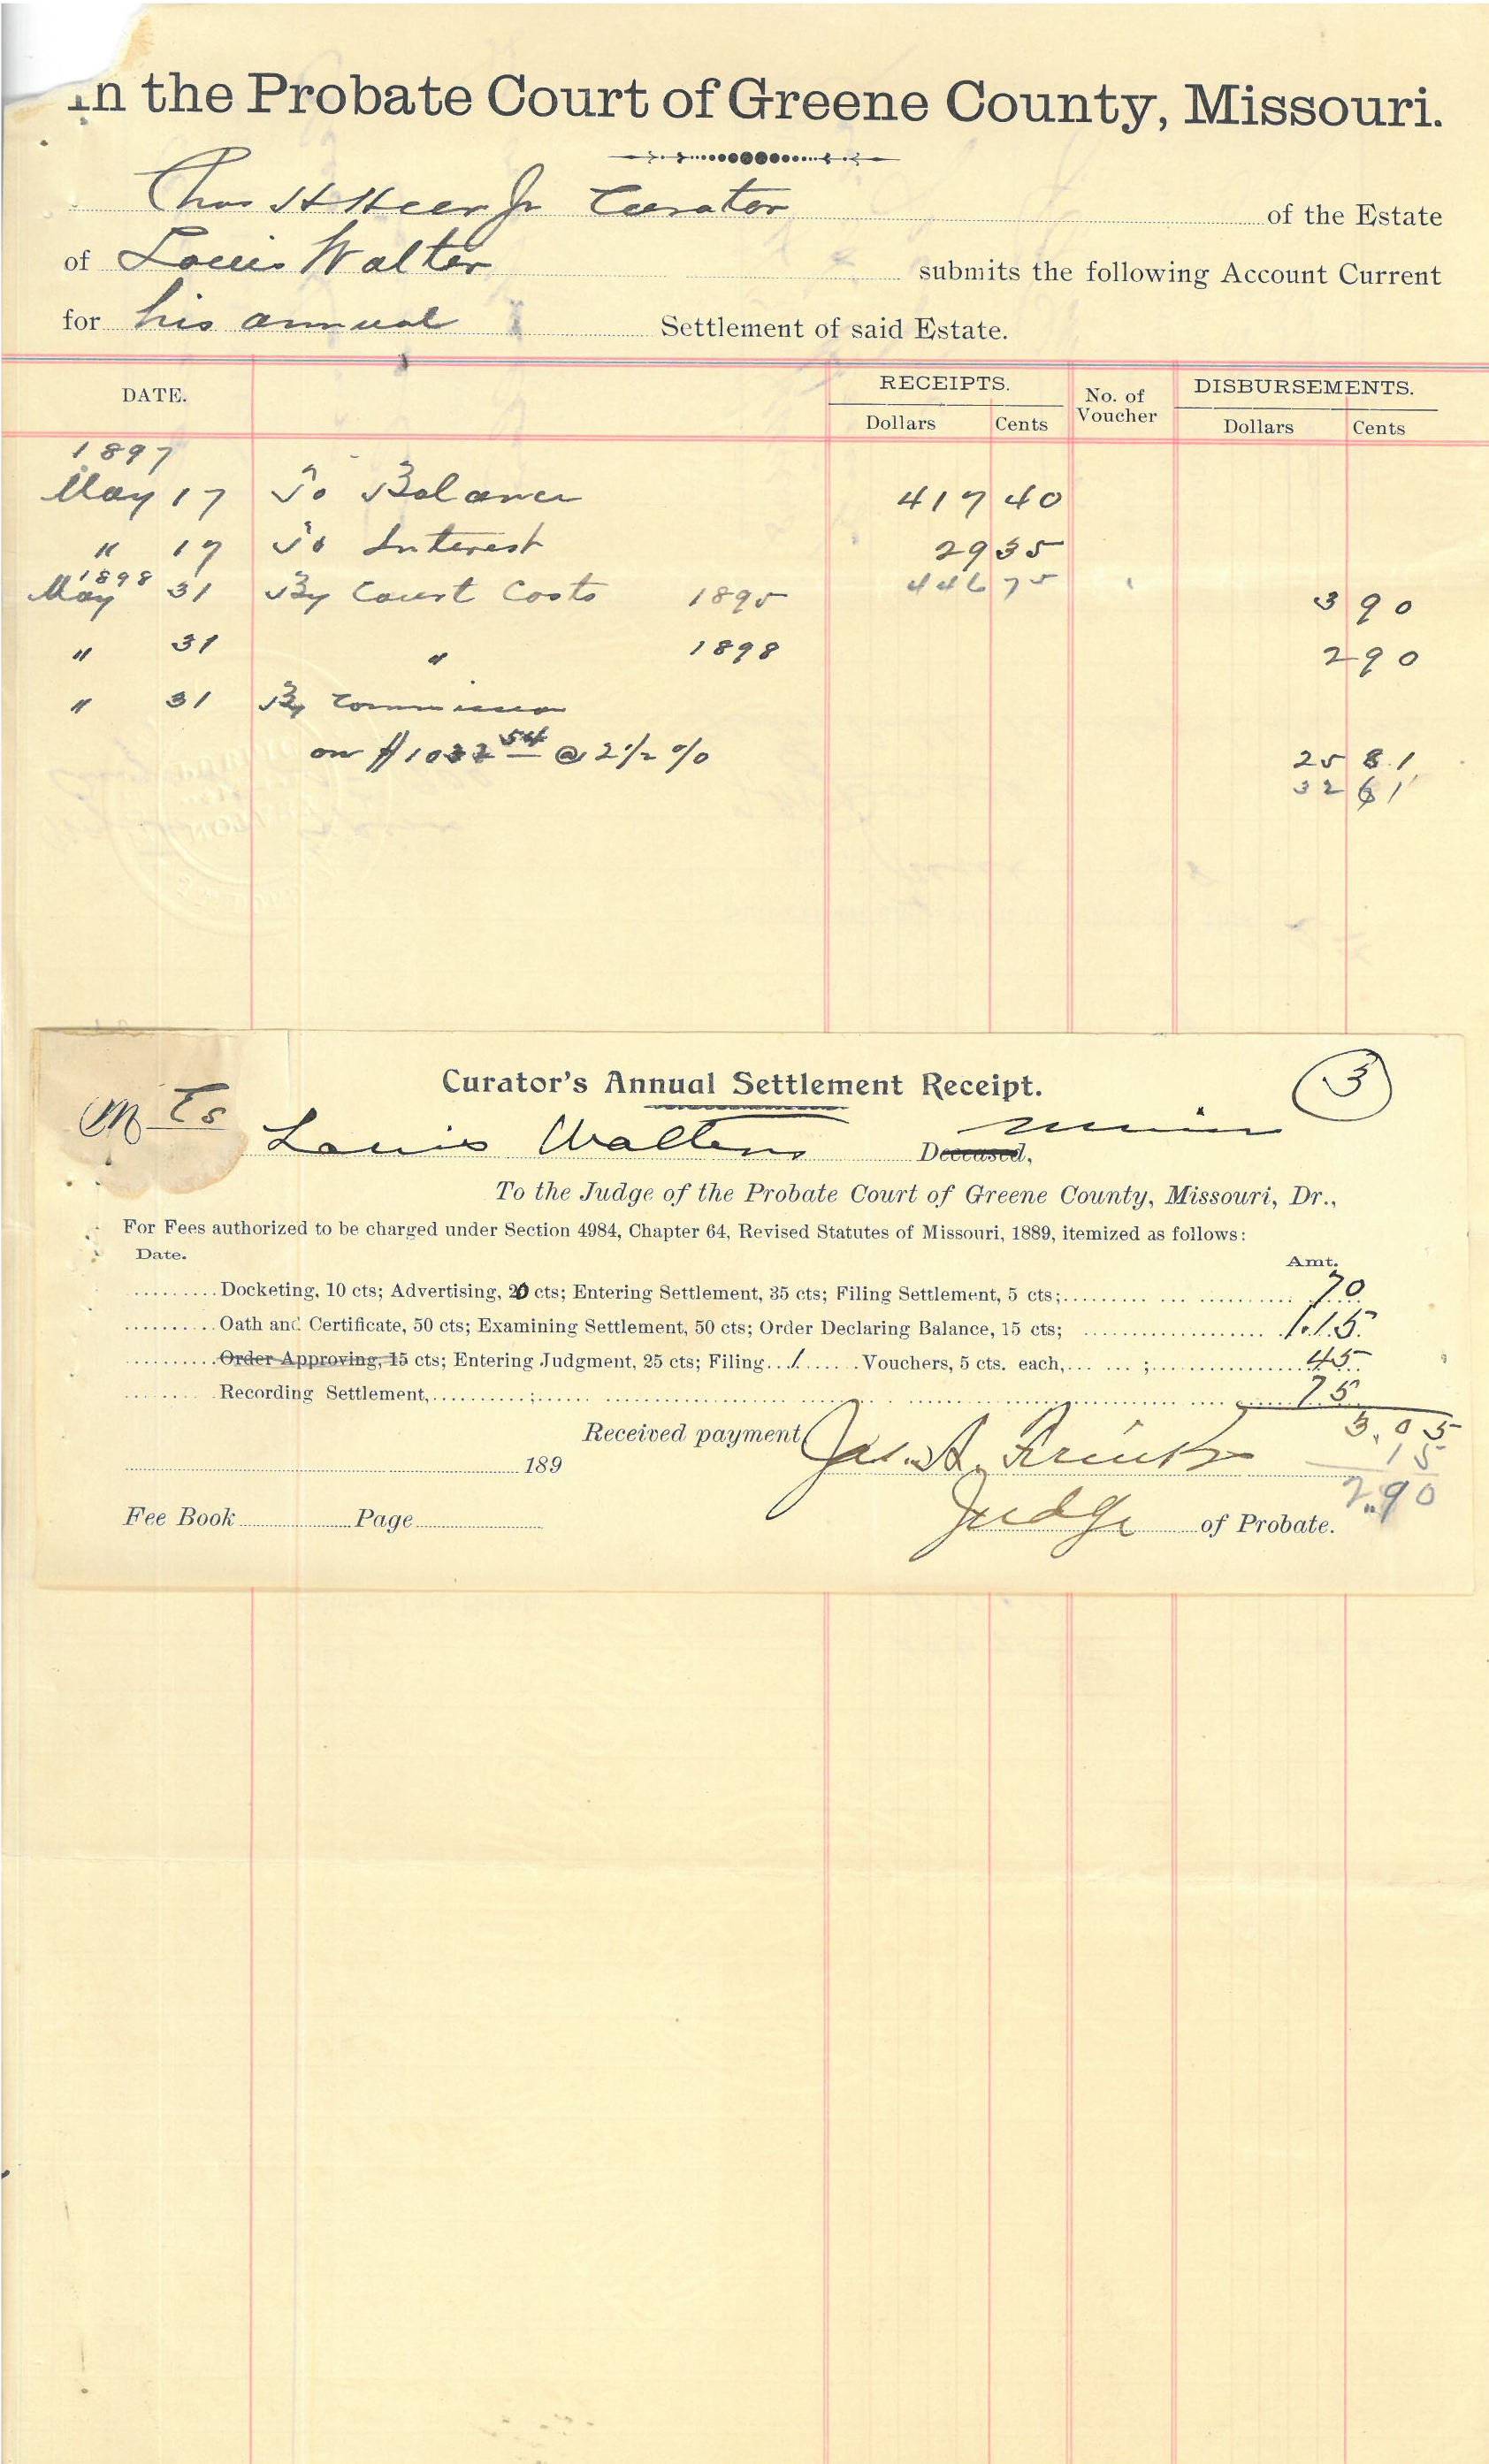 In the Probate Court of Greene County, Missouri.
Chas H Heer Jr Curator of the Estate
of Louis Walter submits the following Account Current
for his annual Settlement of said Estate.
DATE. RECEIPTS. No. of Voucher DISBURSEMENTS.
Dollars Cents Dollars Cents
1897
May 17 To Balance 417 40
" 17 To Interest 29 35
1898 446 75
May 31 By Court Costs 1895 3 90
" 31 " 1898 2 90
" 31 By Commission
on $1032 54 @ 2 1/2 % 25 81
32 61
Curator's Annual Settlement Receipt. 3
Louis Walters Deceased, minor
To the Judge of the Probate Court of Greene County, Missouri, Dr.,
For Fees authorized to be charged under Section 4984, Chapter 64, Revised Statutes of Missouri, 1889, itemized as follows:
Date. Amt.
Docketing, 10 cts; Advertising, 20 cts; Entering Settlement, 35 cts; Filing Settlement, 5 cts; 70
Oath and Certificate, 50 cts; Examining Settlement, 50 cts; Order Declaring Balance, 15 cts; 1.15
Order Approving, 15 cts; Entering Judgment, 25 cts; Filing 1 Vouchers, 5 cts. each, ; 45
Recording Settlement, ; 75
3.05
Received payment, Jas. A.
15
189
2.90
Fee Book Page Judge of Probate.